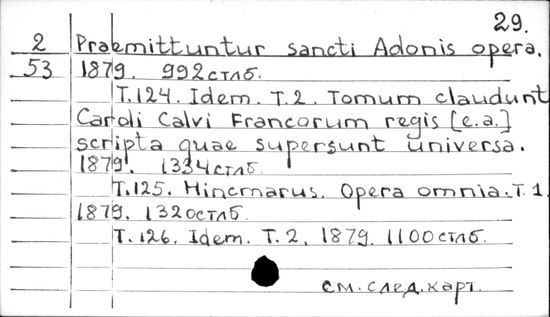 29.
2 Praemittuntur sancti Adonis opera.
53 1879. 992 стлб.
Т.124. Idem. Т.2. Tomum claudunt
Caroli Calvi Francorum regis [e.a.]
scripta quae supersunt universa.
1879. 1334 стлб.
Т.125. Hincmarus. Opera omnia. Т.1.
1879. 1320 стлб.
Т.126. Idem. Т.2. 1879. 1100 стлб.
см. след. карт.